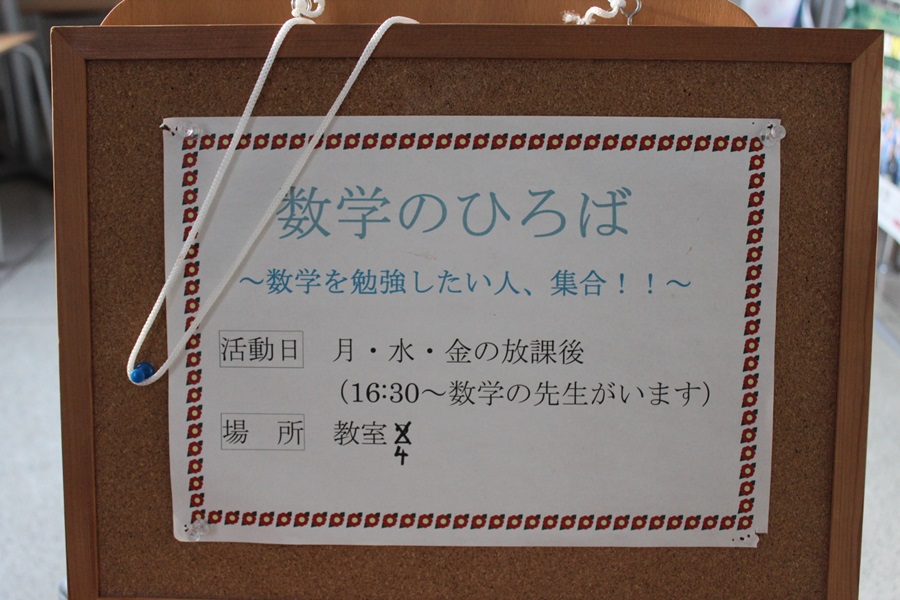 数学のひろば
～数学を勉強したい人、集合！！～
活動日 月・水・金の放課後
（16:30～数学の先生がいます）
場　所 教室
4